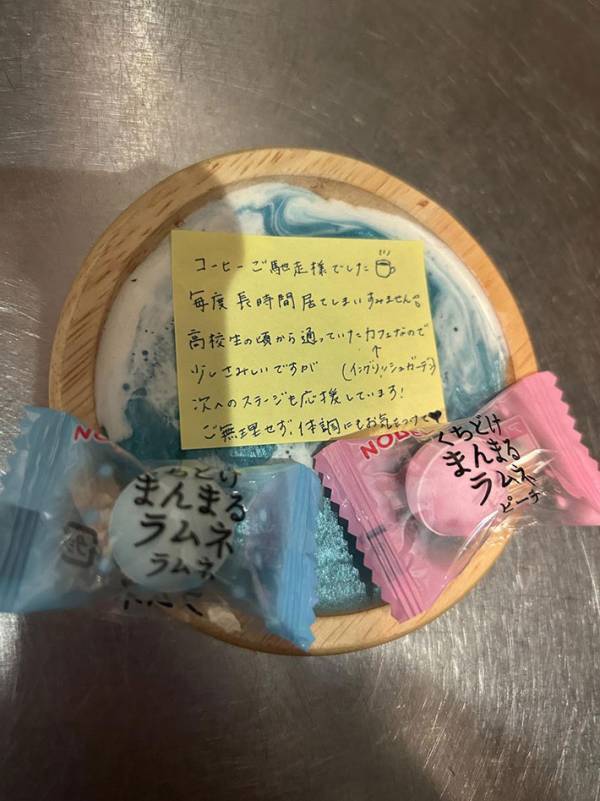 コーヒーご馳走様でした
毎度長時間居てしまいすみません
高校生の頃から通っていたカフェなので
少しさみしいですが (イングリッシュガーデン)
次へのステージも応援しています!
ご無理せず、体調にもお気をつけて♥
NOB
くちどけ
まんまる
ラムネ
ピーチ
どけ
まんまる
ラムネ
ラムネ